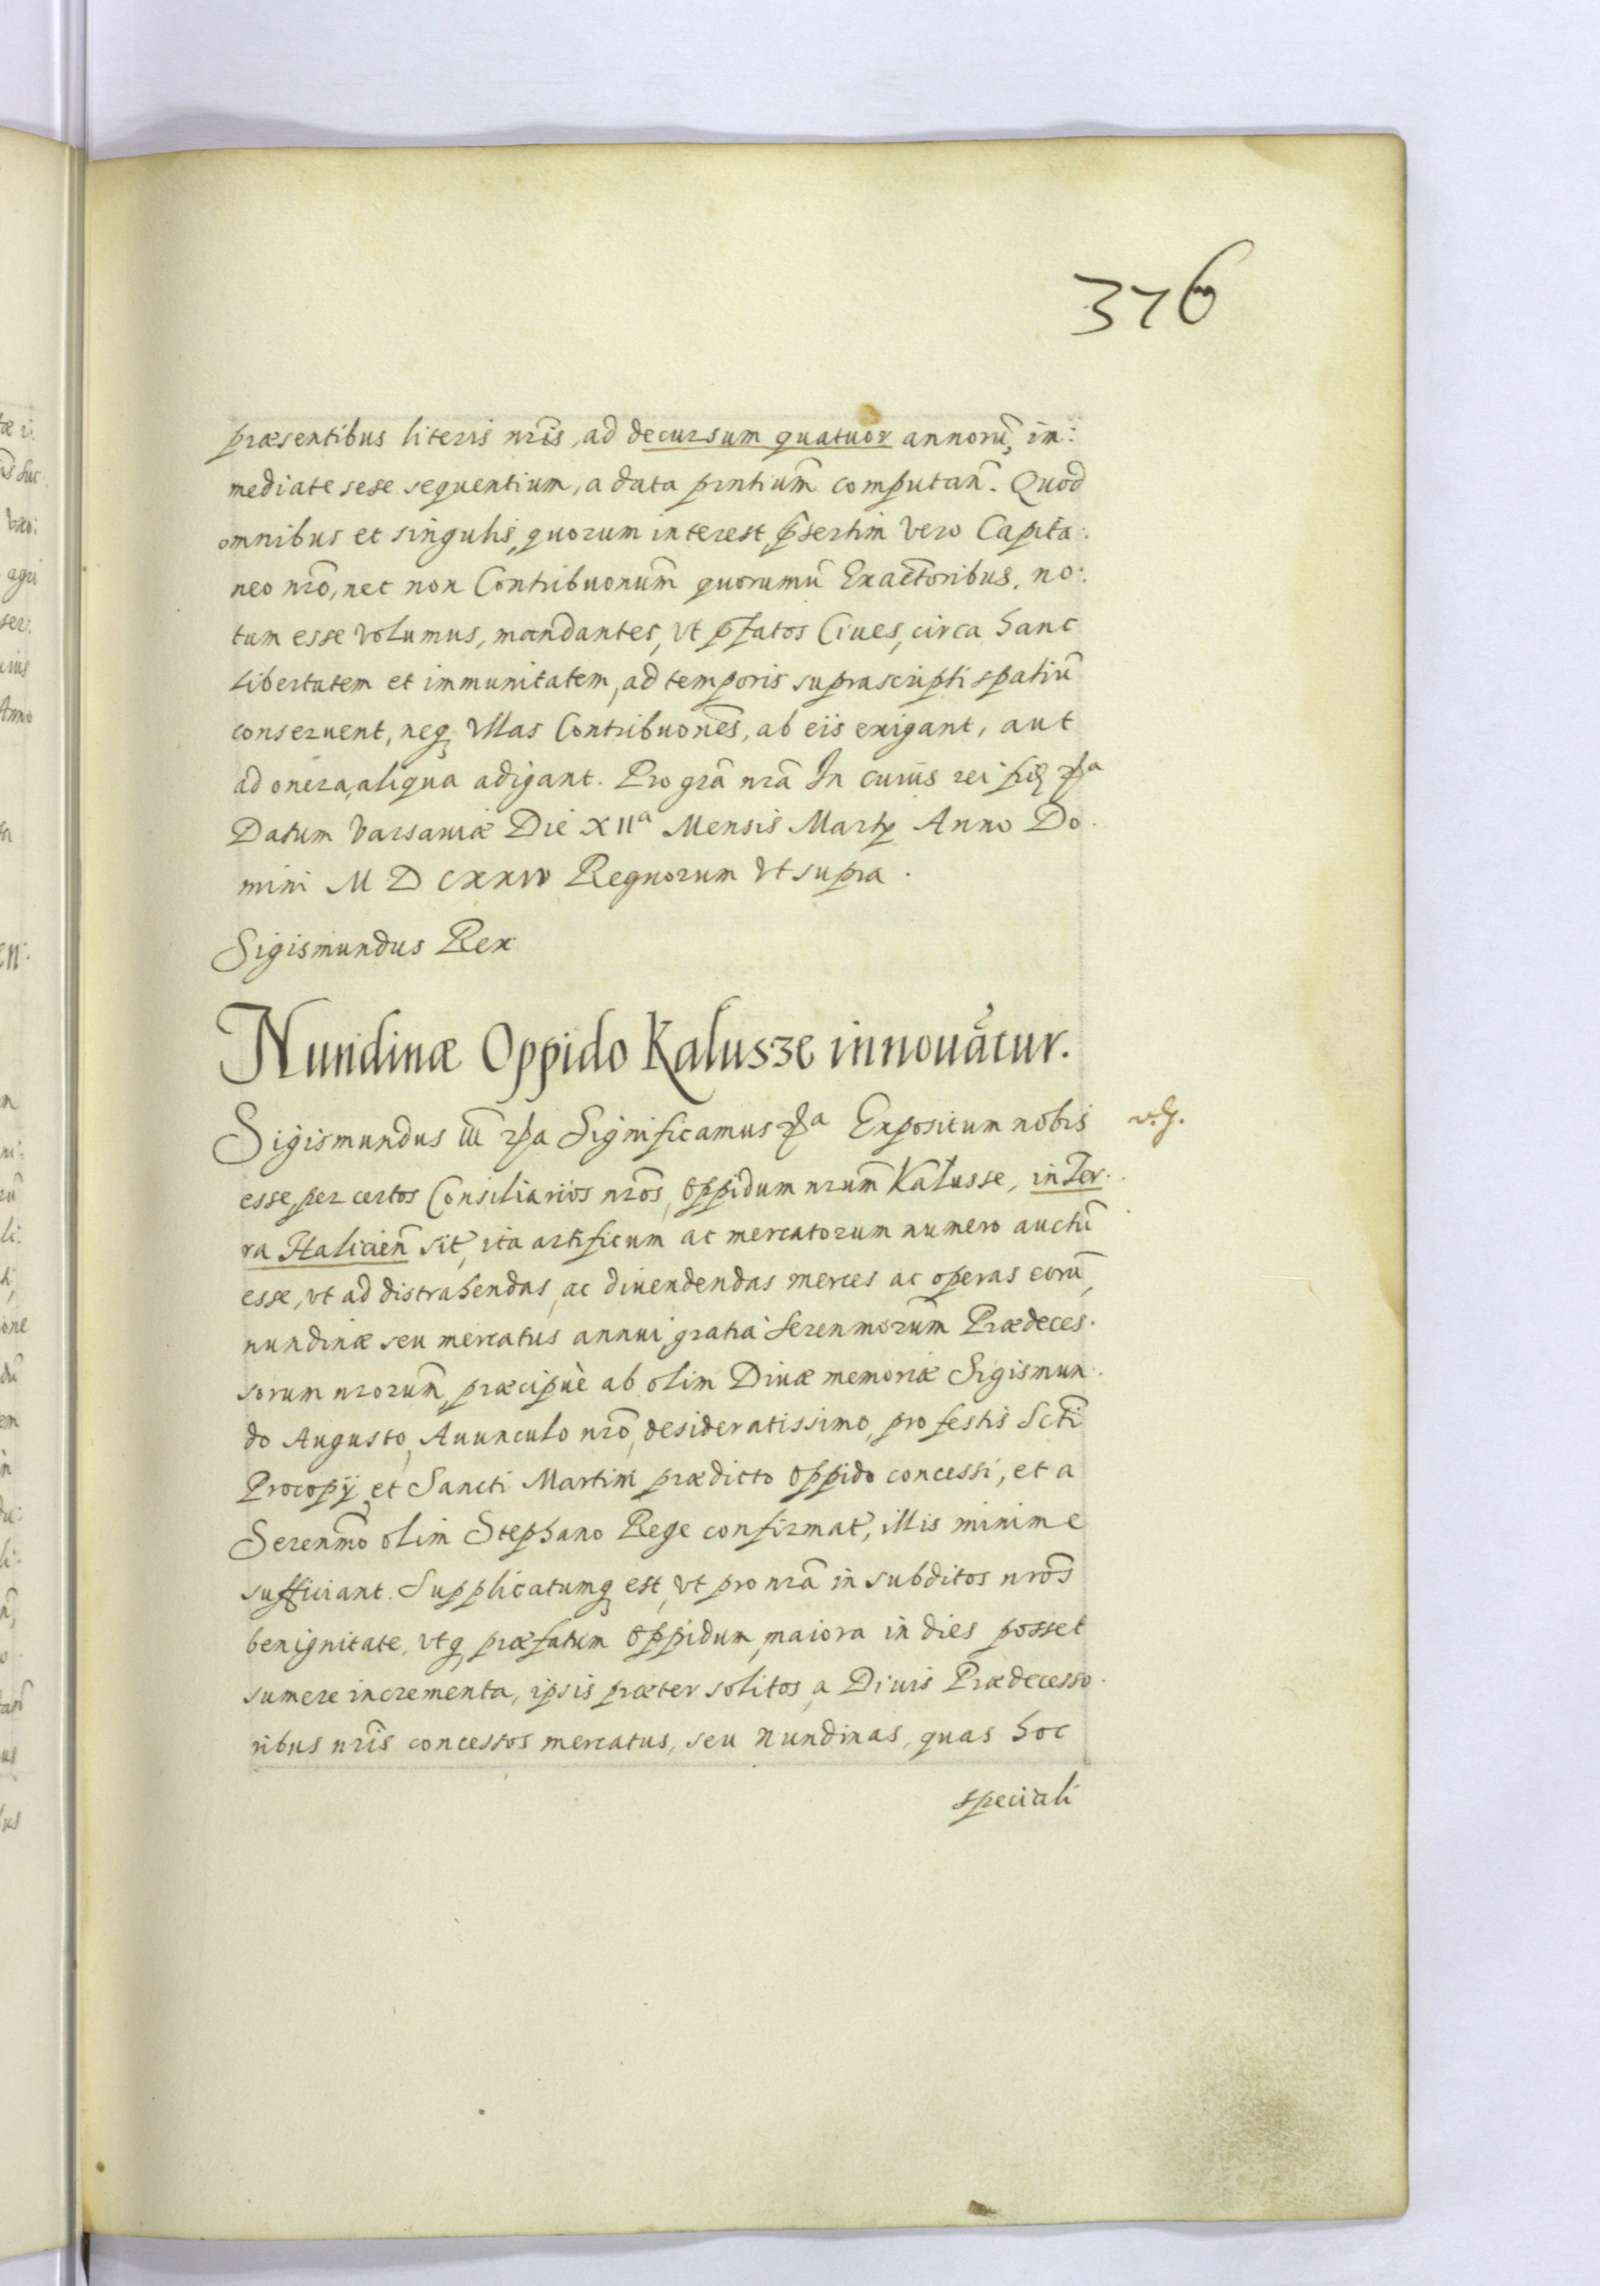 376
præsentibus literis nr̃is, ad decursum quatuor annorũ, im:
mediate sese sequentium, a data pn̄tium̃ computan̄. Quod
omnibus et singulis, quorum interest, p̃sertim vero Capita:
neo nr̃o, nec non Contribuonum̃ quorumũ Exactoribus, no:
tum esse volumus, mandantes, vt p̃fatos Ciues, circa hanc
libertatem et immunitatem, ad temporis suprascripti spatiũ
conseruent, neq̨ vllas Contribuones̃, ab eis exigant, aut
ad onera, aliqua adigant. Pro grã nr̃a In cuius rei
Datum Varsauiæ Die XIIª Mensis Martij Anno Do.
mini M D CXXIV Regnorum vt supra.
Sigismundus Rex
Nundinæ Oppido Kalusze innouãtur.
Sigismundus III Significamus Expositum nobis
esse, per certos Consiliarios nr̃os, Oppidum nr̃um Kalusse, in Ter.
ra Halicien̄ sit, ita artificum ac mercatorum numero auctũ
esse, vt ad distrahendas, ac diuendendas merces ac operas eorũ,
nundinæ seu mercatus annui gratia Serenmorum̃ Prædeces.
sorum nr̃orum, præcipuè ab olim Diuæ memoriæ Sigismun.
do Augusto, Auunculo nr̃o, desideratissimo, pro festis Sctĩ
Procopij et Sancti Martini prædicto Oppido concessi, et a
Serenm̃o olim Stephano Rege confirmat̃, illis minime
sufficiant. Supplicatumq̨ est, vt pro nr̃a in subditos nr̃os
benignitate, vtq̨ præfatum Oppidum, maiora in dies posset
sumere incrementa, ipsis præter solitos, a Diuis Prædecesso.
ribus nr̃is concessos mercatus, seu nundinas, quas hoc
speciali